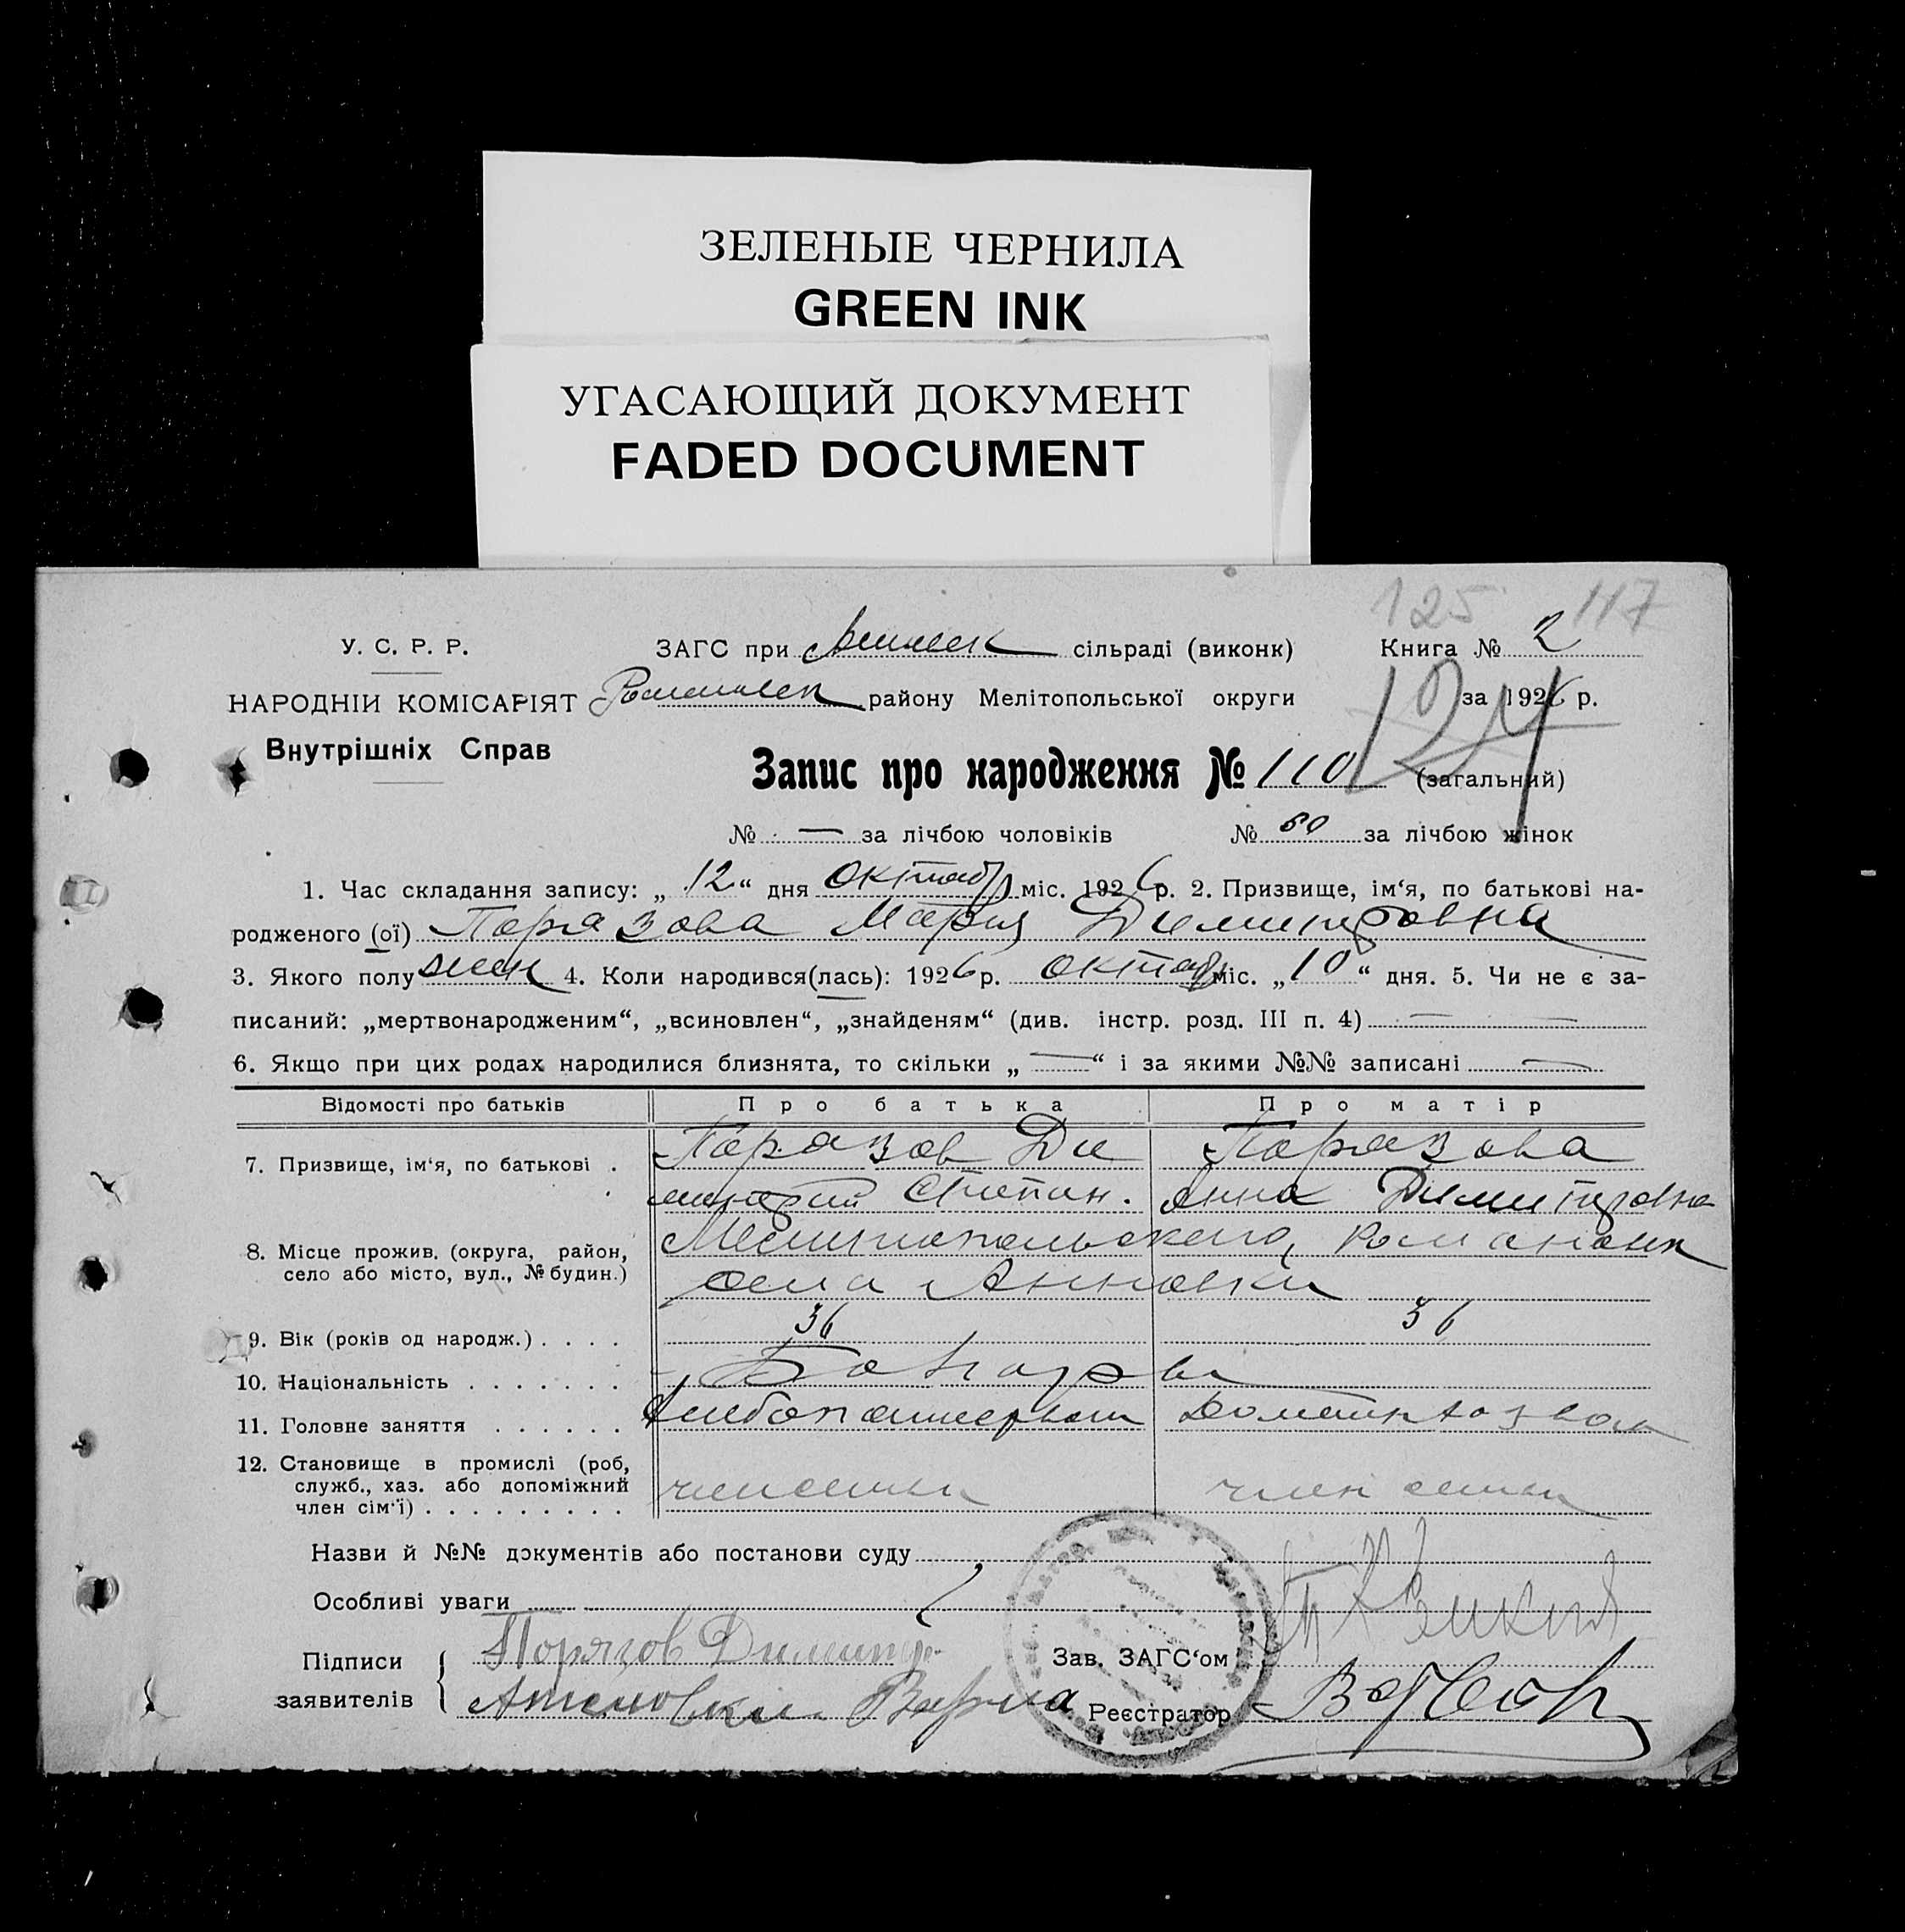 ЗЕЛЕНЫЕ ЧЕРНИЛА
GREEN INK
УГАСАЮЩИЙ ДОКУМЕНТ
FADED DOCUMENT
125 117
У. С. Р. Р. ЗАГС при сільраді (виконк) Книга № 2
НАРОДНІИ КОМІСАРІЯТ району Мелітопольської округи за 1926 р.
Внутрішніх Справ
124
Запис про народження № 110 (загальний)
№ — за лічбою чоловіків № 60 за лічбою жінок
1. Час складання запису: „12“ дня октябр міс. 1926 р. 2. Призвище, ім‘я, по батькові на-
родженого (ої) Поразова Мария Димитровна
3. Якого полу жен 4. Коли народився(лась): 1926 р. октяб міс. „10“ дня. 5. Чи не є за-
писаний: „мертвонародженим“, „всиновлен“, „знайденям“ (див. інстр. розд. III п. 4) — —
6. Якщо при цих родах народилися близнята, то скільки „—“ і за якими №№ записані —
Відомості про батьків Про батька Про матір
7. Призвище, ім‘я, по батькові . Поразов Ди Поразова
митрий Степан. Анна Димитровна
8. Місце прожив. (округа, район, Мелитопольского, Романовск
село або місто, вул., № будин.) села Анновки
9. Вік (років од народж.) . . . . 36 36
10. Національність . . . . . . . Болгары
11. Головне заняття . . . . . . Хлебопашеством Домашн
12. Становище в промислі (роб,
служб., хаз. або допоміжний член семьи член семьи
член сім‘ї) . . . . . . . . .
Назви й №№ документів або постанови суду
Особливі уваги
Підписи Порязов Димитр Зав. ЗАГС‘ом
заявителів Реєстратор